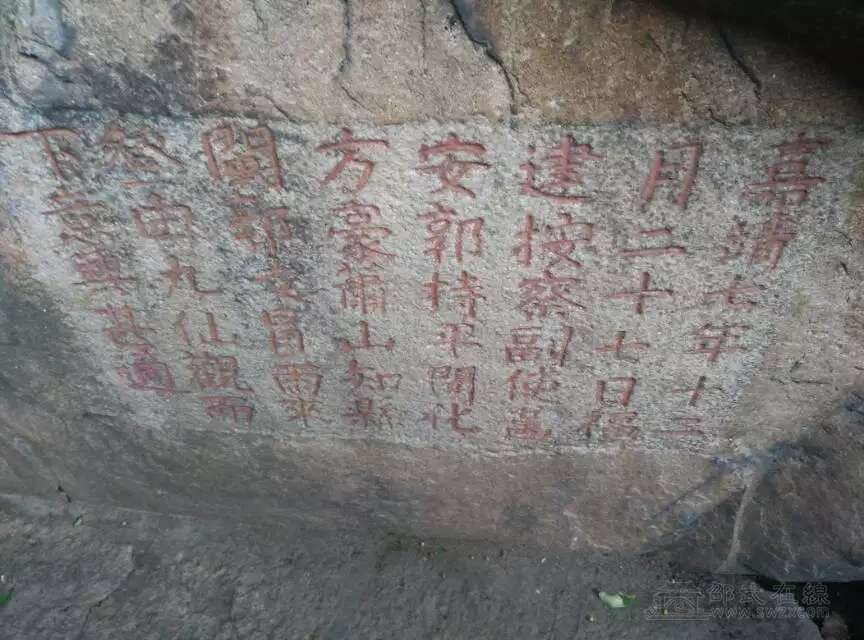 嘉靖七年十二
月二十七日福
建按察副使萬
安郭持平開化
方豪蕭山知縣
閩玄冒雨來
登由九仙觀而
下意興甚適